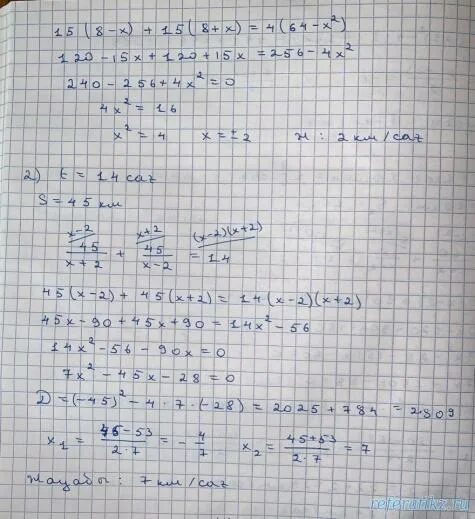 15(8-x) + 15(8+x) = 4(64-x²)
120 - 15x + 120 + 15x = 256 - 4x²
240 - 256 + 4x² = 0
4x² = 16
x² = 4 x = ±2 Ж: 2 км/саг
2) t = 14 саг
S = 45 км
x-2 x+2 (x-2)(x+2)
45/(x+2) + 45/(x-2) = 14
45(x-2) + 45(x+2) = 14(x-2)(x+2)
45x - 90 + 45x + 90 = 14x² - 56
14x² - 56 - 90x = 0
7x² - 45x - 28 = 0
D = (-45)² - 4·7·(-28) = 2025 + 784 = 2809
x₁ = (45-53)/(2·7) = -4/7 x₂ = (45+53)/(2·7) = 7
Жауабы: 7 км/саг
referatikz.ru